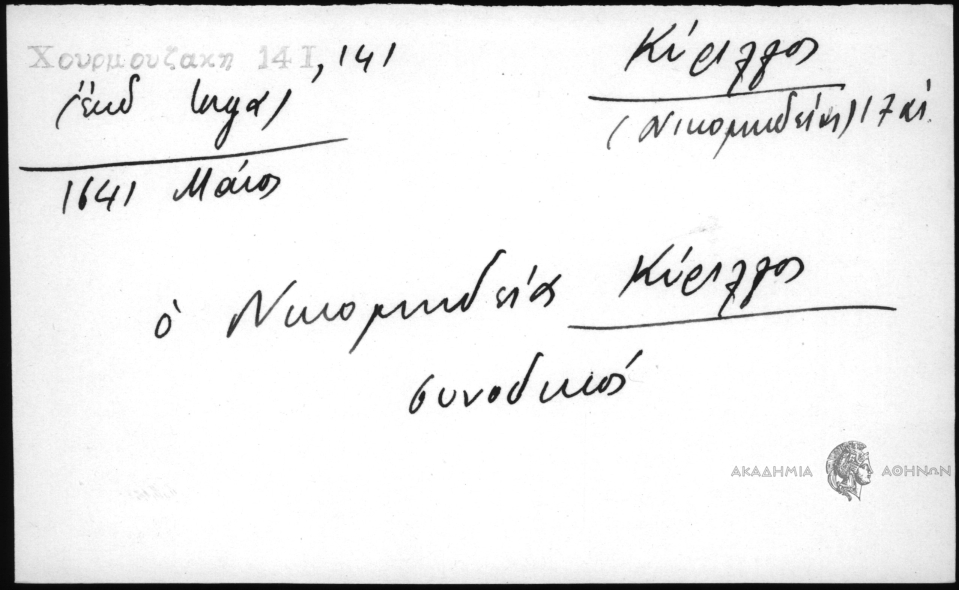 Χουρμουζακη 14 Ι, 141
(ἔκδ Ιοργα)
1641 Μάιος
Κύριλλος
(Νικομηδείας) 17 αἰ.
ὁ Νικομηδείας Κύριλλος
συνοδικός
ΑΚΑΔΗΜΙΑ ΑΘΗΝΩΝ